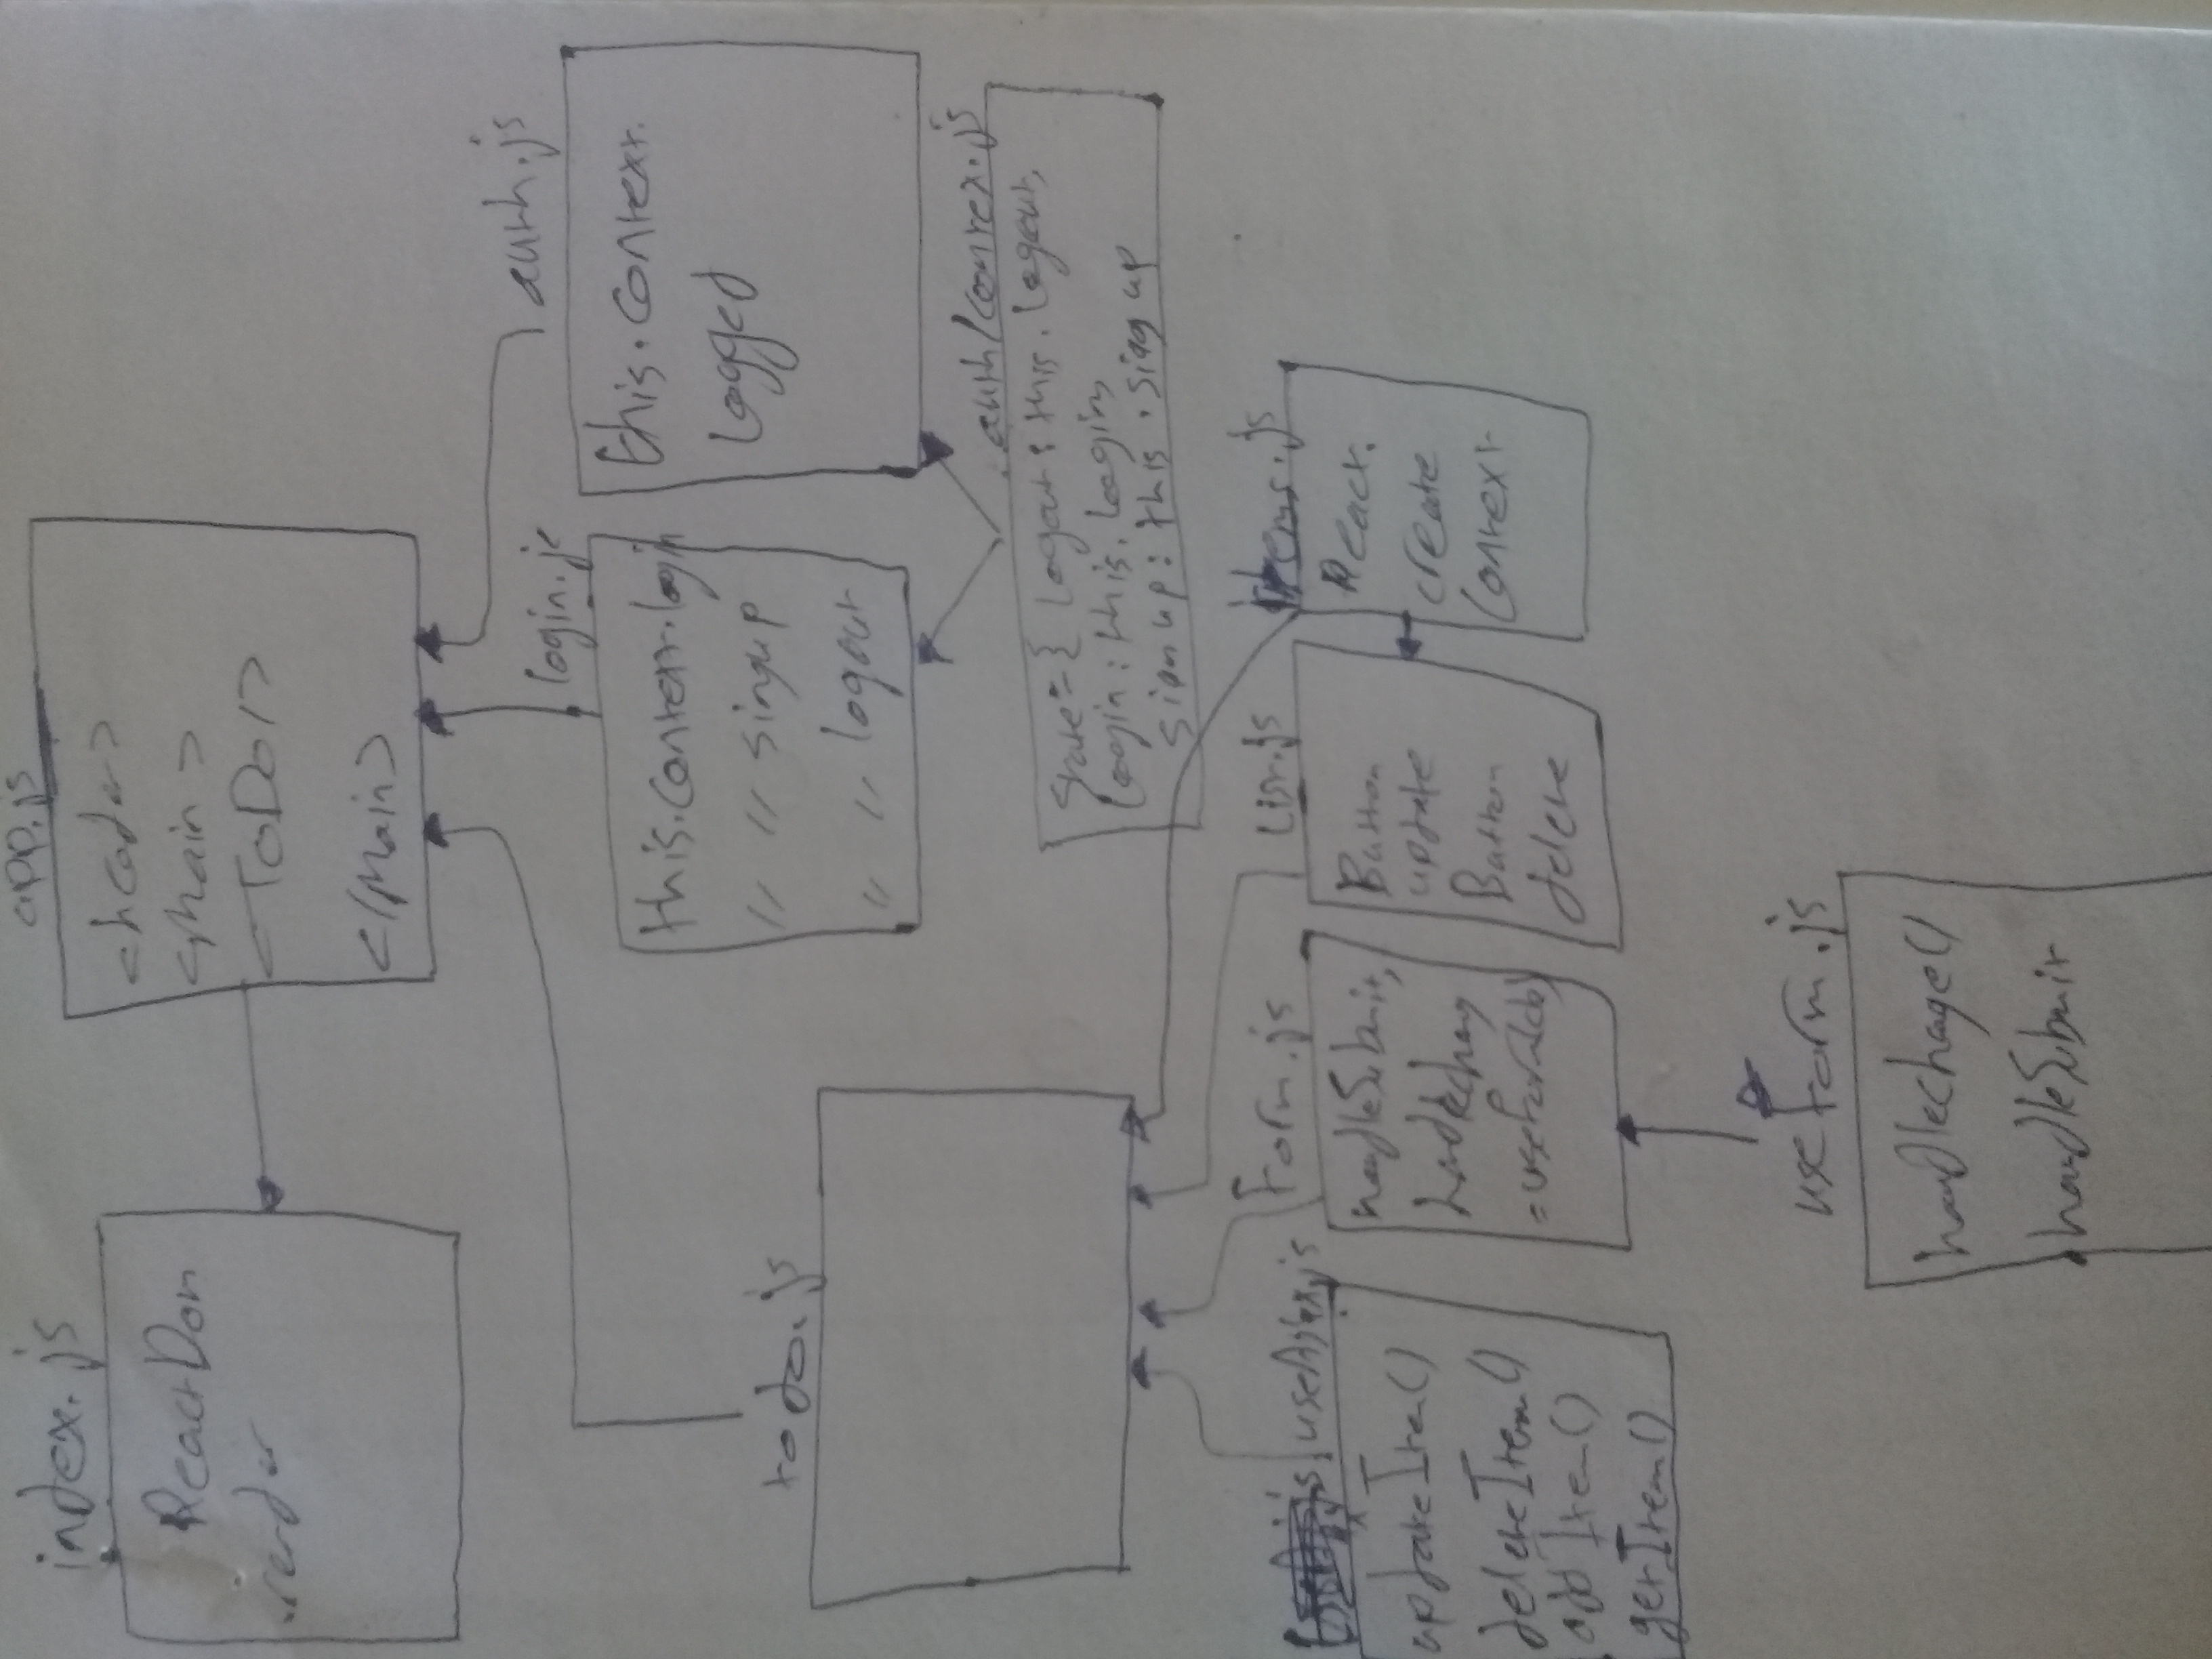 index.js
ReactDom
.render
app.js
<header>
<Main>
<ToDo/>
</Main>
login.js
this.context.login
" " singup
" " logout
auth.js
this.context.
Logged
todo.js
auth/contex.js
State={ Logout: this.Logout,
Login: this.Login,
signup: this.signup
useAjax.js
updateItem()
deleteItem()
addItem()
getItem()
Form.js
handleSubmit,
handlechang
=useForm(cb)
List.js
Button
update
Button
delete
items.js
React.
create
Context
useForm.js
handlechage()
handleSubmit